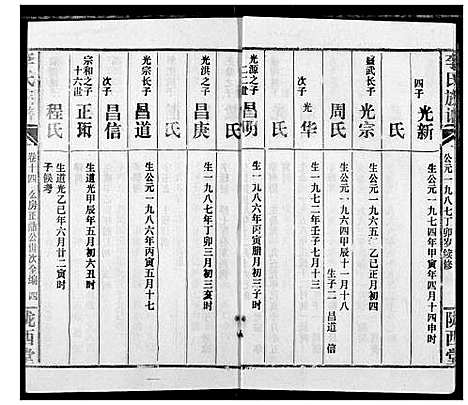 李氏族谱
公元一九八七丁卯岁续修
陇西堂
四子
光新
生公元一九七四年甲寅年四月十四申时
氏
益武长子
光宗
生公元一九六五乙巳正月初四
周氏
生公元一九六四甲辰十一月十八
生子二 昌道 信
次子
光华
生公元一九七二年壬子七月十三
氏
光源之子
二二世
昌明
生公元一九八六年丙寅腊月初三子时
氏
光洪之子
昌庚
生公元一九八七年丁卯三月初三亥时
氏
光宗长子
昌道
生公元一九八六年丙寅五月十七
次子
昌信
宗和之子
十六世
正珩
生道光甲辰年五月初六丑时
程氏
生道光乙巳年六月廿二寅时
子候考
李氏族谱
卷十四 么房正品公世次全编 四
陇西堂